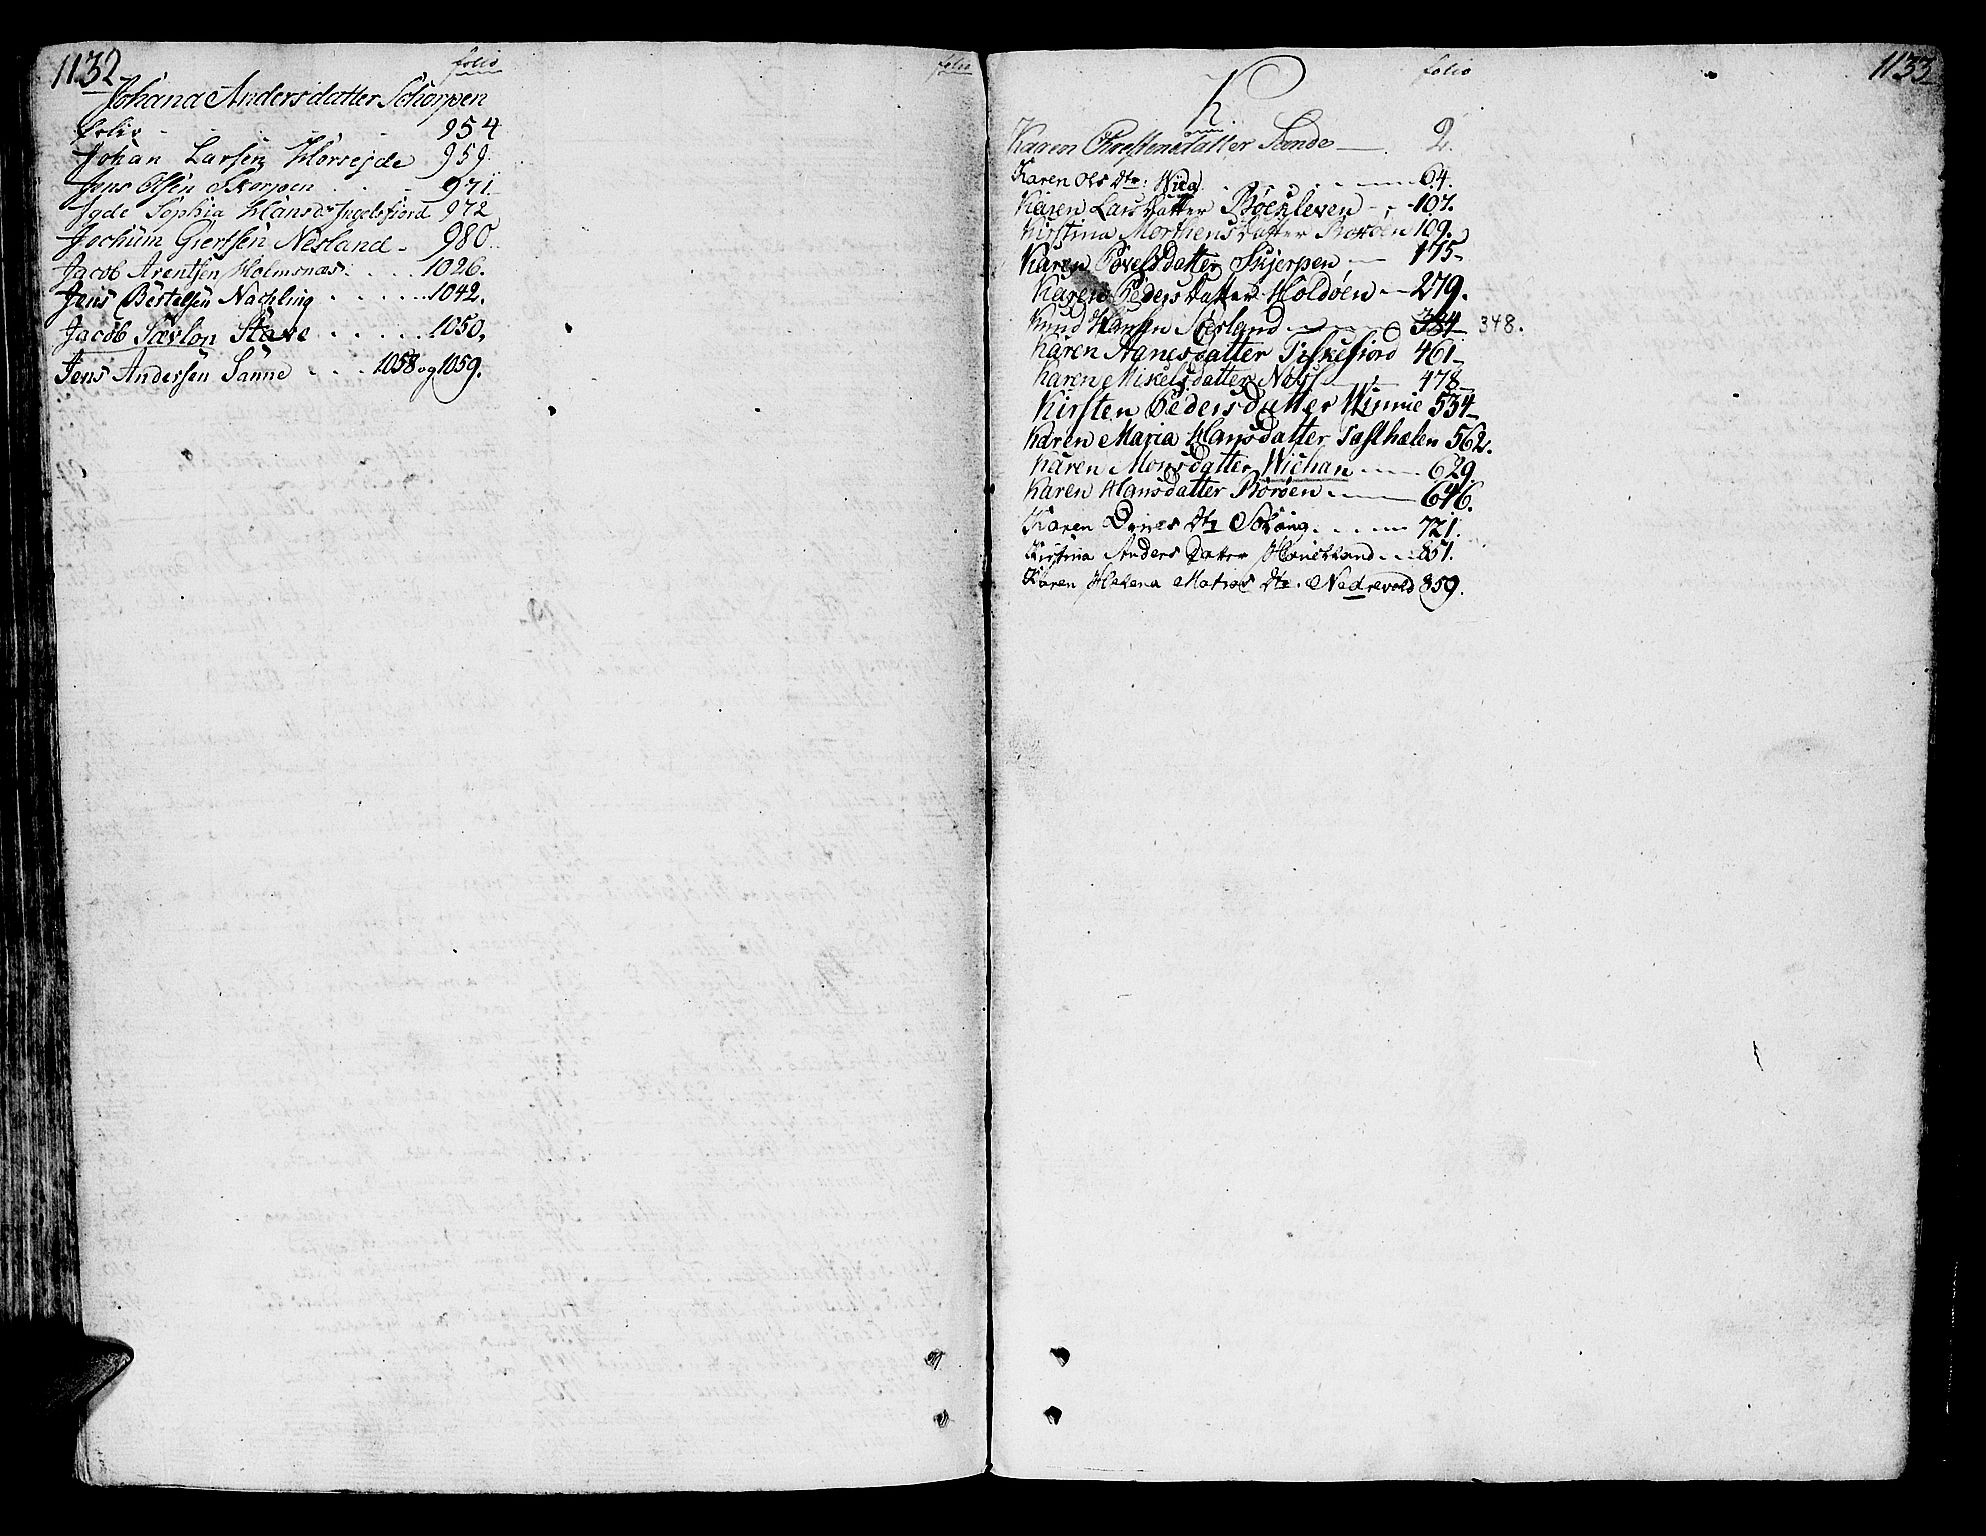 1132
folio
folio
Johana Andersdatter Schorpen
folio - - - - 954
Johan Larsen Horrejde 959.
Jens Olsen Skorpen . . . 971.
Jgde Sophia Hansdr Ingelsfiord 972
Jochum Giertsen Nesland - 980.
Jacob Arentsen Holmsnæs. . . . . 1026.
Jens Bertelsen Nachling . . . . . . 1042.
Jacob Stave . . . . . . 1050.
Jens Andersen Sanne . . . . 1058 og 1059.
1133
folio
K
Karen Sande 2.
Karen Ols Dtr: . . . 64.
Karen Larsdatter 107.
Kirstina Morthensdatter 109.
Karen Povelsdatter Skjerpen 175
Karen Pedersdatter Holdøen 279.
Knud Hansen 384 348.
Karen Agnesdatter Fiskefiord 461
Karen Mikelsdatter 478
Kirsten Pedersdatter Winnie 534
Karen Maria Hansdatter 562.
Karen Monsdatter Wichan 629
Karen Hansdatter Børøen 646.
Karen Dtr 721.
Kistina Anders Datter 851.
Karen Helena Matias Dtr. Nedrevold 859.